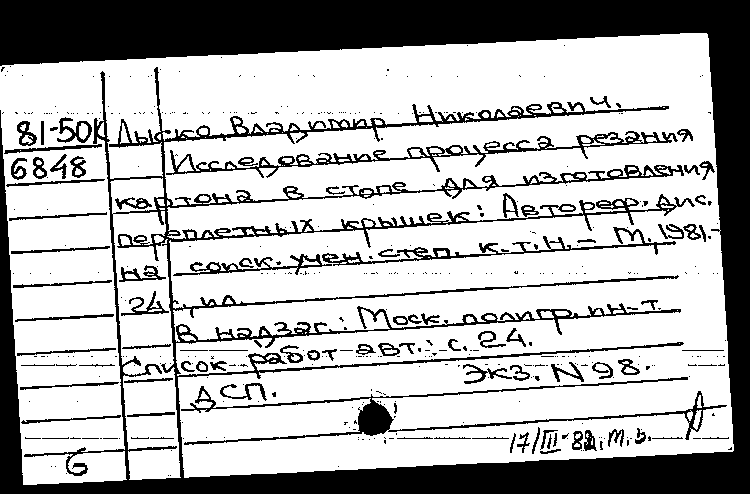 81-50К Лыско, Владимир Николаевич.
6848 Исследование процесса резания
картона в стопе для изготовления
переплетных крышек: Автореф. дис.
на соиск. учен. степ. к.т.н. – М., 1981.–
24с., ил.
В надзаг.: Моск. полигр. ин-т
Список работ авт.: с. 24.
ДСП. Экз. N 98.
17/III-82. М. Б.
6